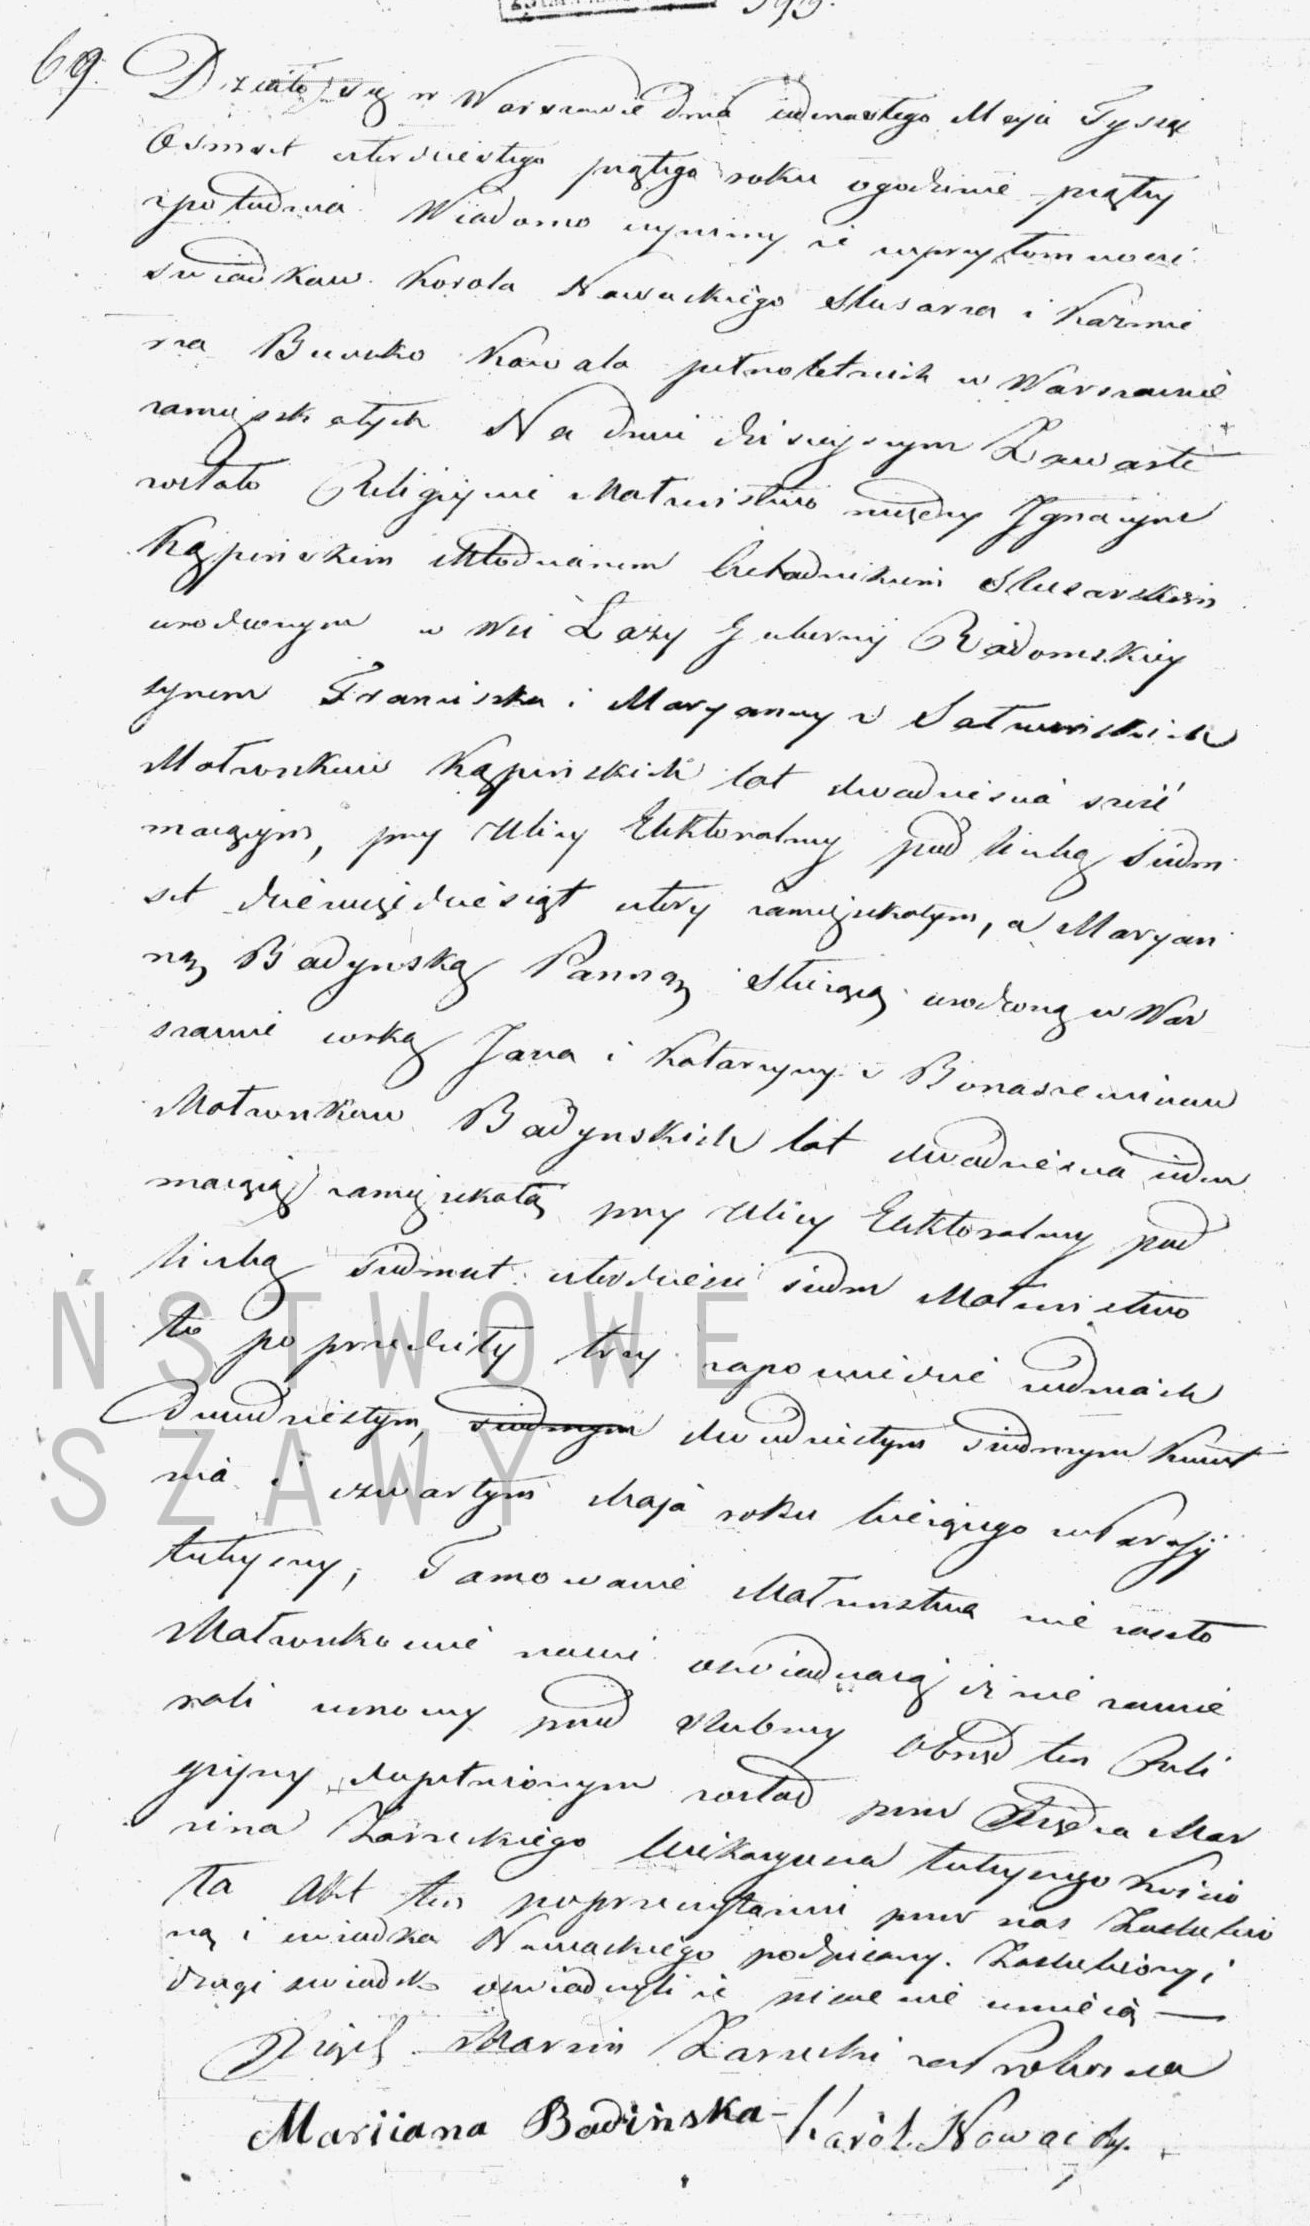 69. Działo się w Warszawie dnia iedenastego Maja Tysiąc
Osmset czterdziestego piątego roku o godzinie piątey
z południa Wiadomo czynimy że w przytomności
swiadkow Karola Nawackiego Slusarza i Kazmie
rza Kowala pełnoletnich w Warszawie
zamieszkałych Na dniu dzisieyszym Zawarte
zostało Religijne Małzeństwo między Ignacym
Kąpińskim Młodzianem Czeladnikiem Slusarskim
urodzonym w Wsi Łazy Gubernij Radomskiey
synem Franciszka i Maryanny z
Małzonkow Kąpinskich lat dwadziescia szesć
maiącym, przy Ulicy Elektoralney pod liczbą siedm
set dziewięćdziesiąt cztery zamieszkałym, a Maryan
ną Badynską Panną Służącą urodzoną w War
szawie corką Jana i Katarzyny z
Małzonkow Badynskich lat dwadziescia iedен
maiącą zamieszkałą przy Ulicy Elektoralney pod
liczbą siedmset czterdzieści siedm Małzeństwo
to poprzedziły trzy zapowiedzie w dniach
Dwudziestym, siodmym dwudziestym siodmym Kwiet
nia i czwartym Maja roku bieżącego w Parafij
tuteyszey, Tamowanie Małzenstwa nie zaszło
Małzonkowie nowi oswiadczaią iż nie zawie
rali umowy przed slubney Obrzęd ten Reli
gijny dopełnionym został przez Xiędza Mar
cina Zarzeckiego Wikaryusza tuteyszego Koscio
ła Akt ten po przeczytaniu przez nas Zaslubio
ną i swiadka Nawackiego podpisany. Zaslubiony i
drugi swiadek oswiadczyli że pisać nie umieią —
Xiądz Marcin Zarzecki za Proboszcza
Mariiana Badińska - Karól Nowacky.
ŃSTWOWE
SZAWY